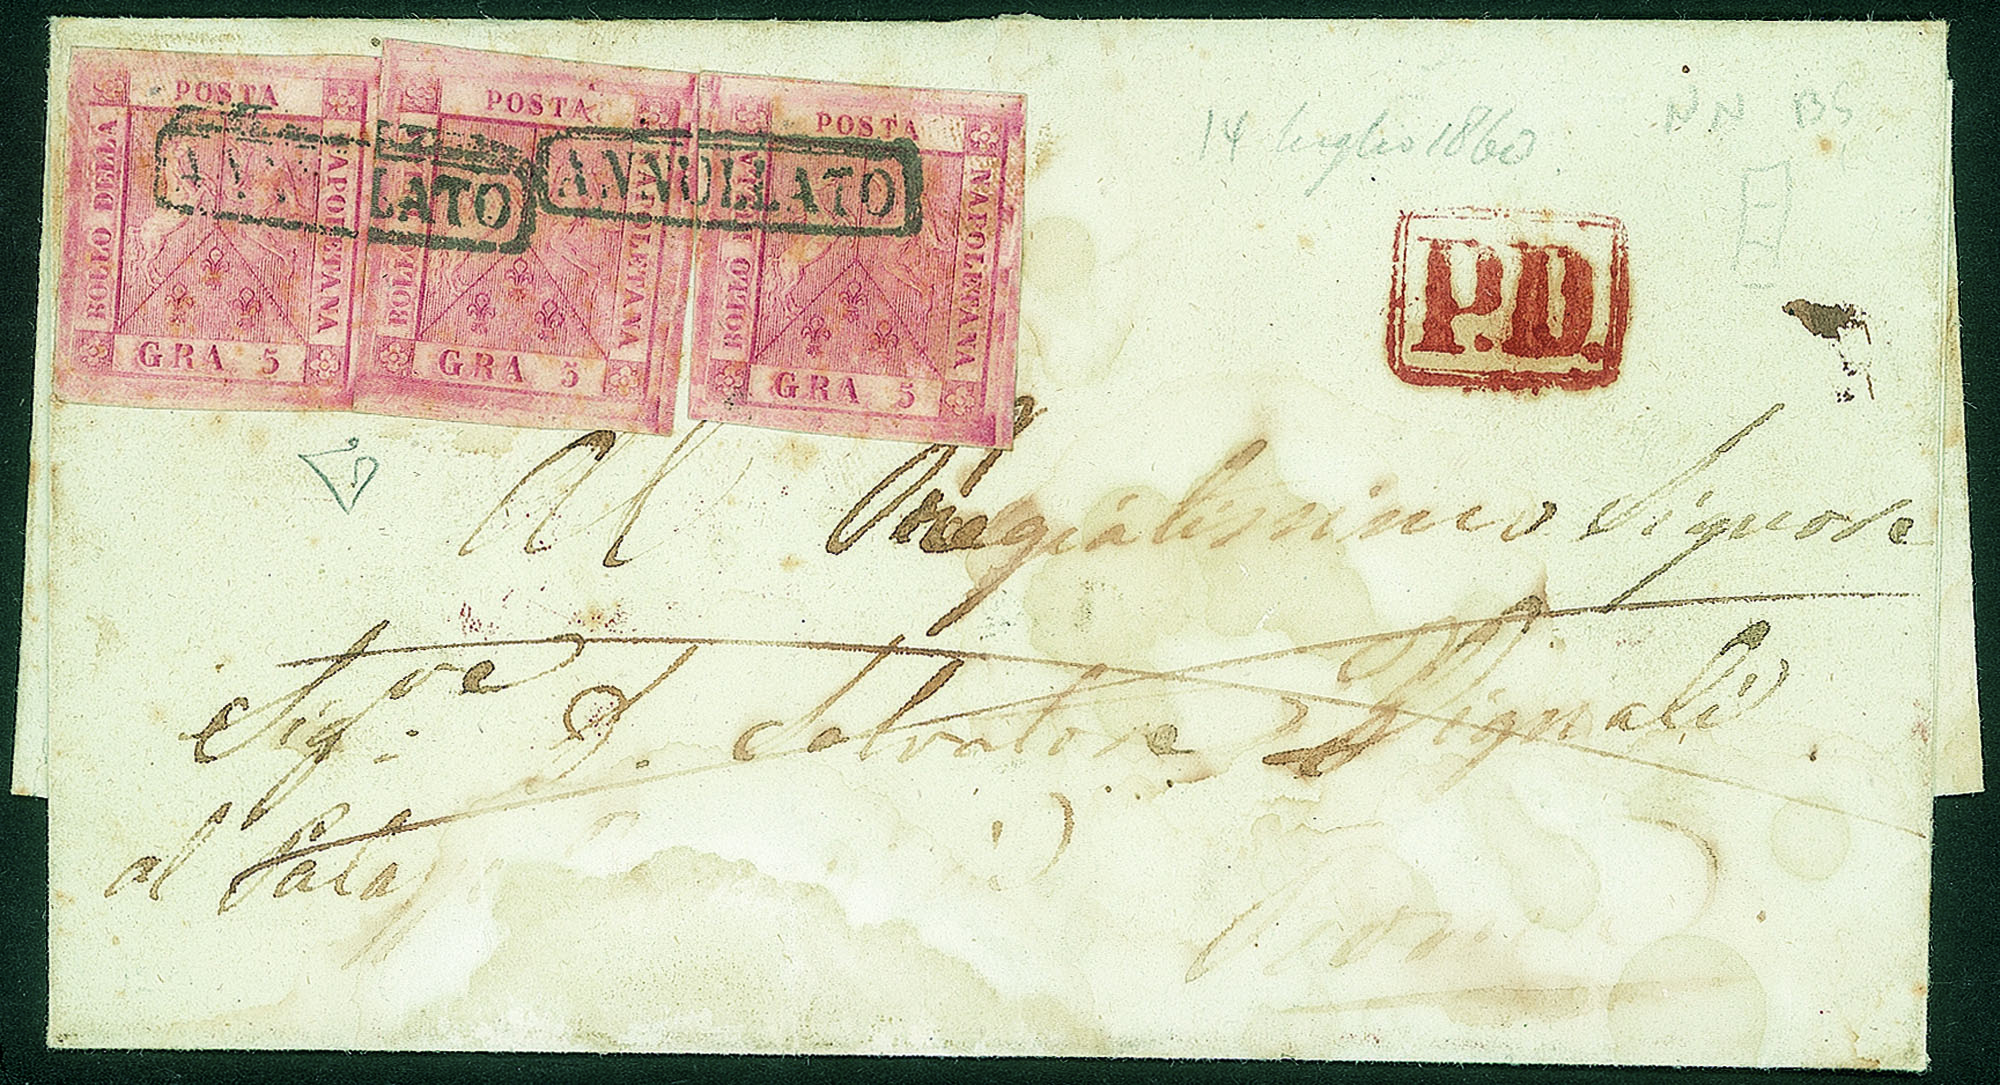 POSTA
BOLLO DELLA
NAPOLETANA
GRA 5
POSTA
BOLLO DELLA
NAPOLETANA
GRA 5
POSTA
BOLLO DELLA
NAPOLETANA
GRA 5
ANNULLATO
ANNULLATO
14 luglio 1860
N N BS
P.D.
Al Pregiatissimo Signore
Sig.re D. Salvatore
al